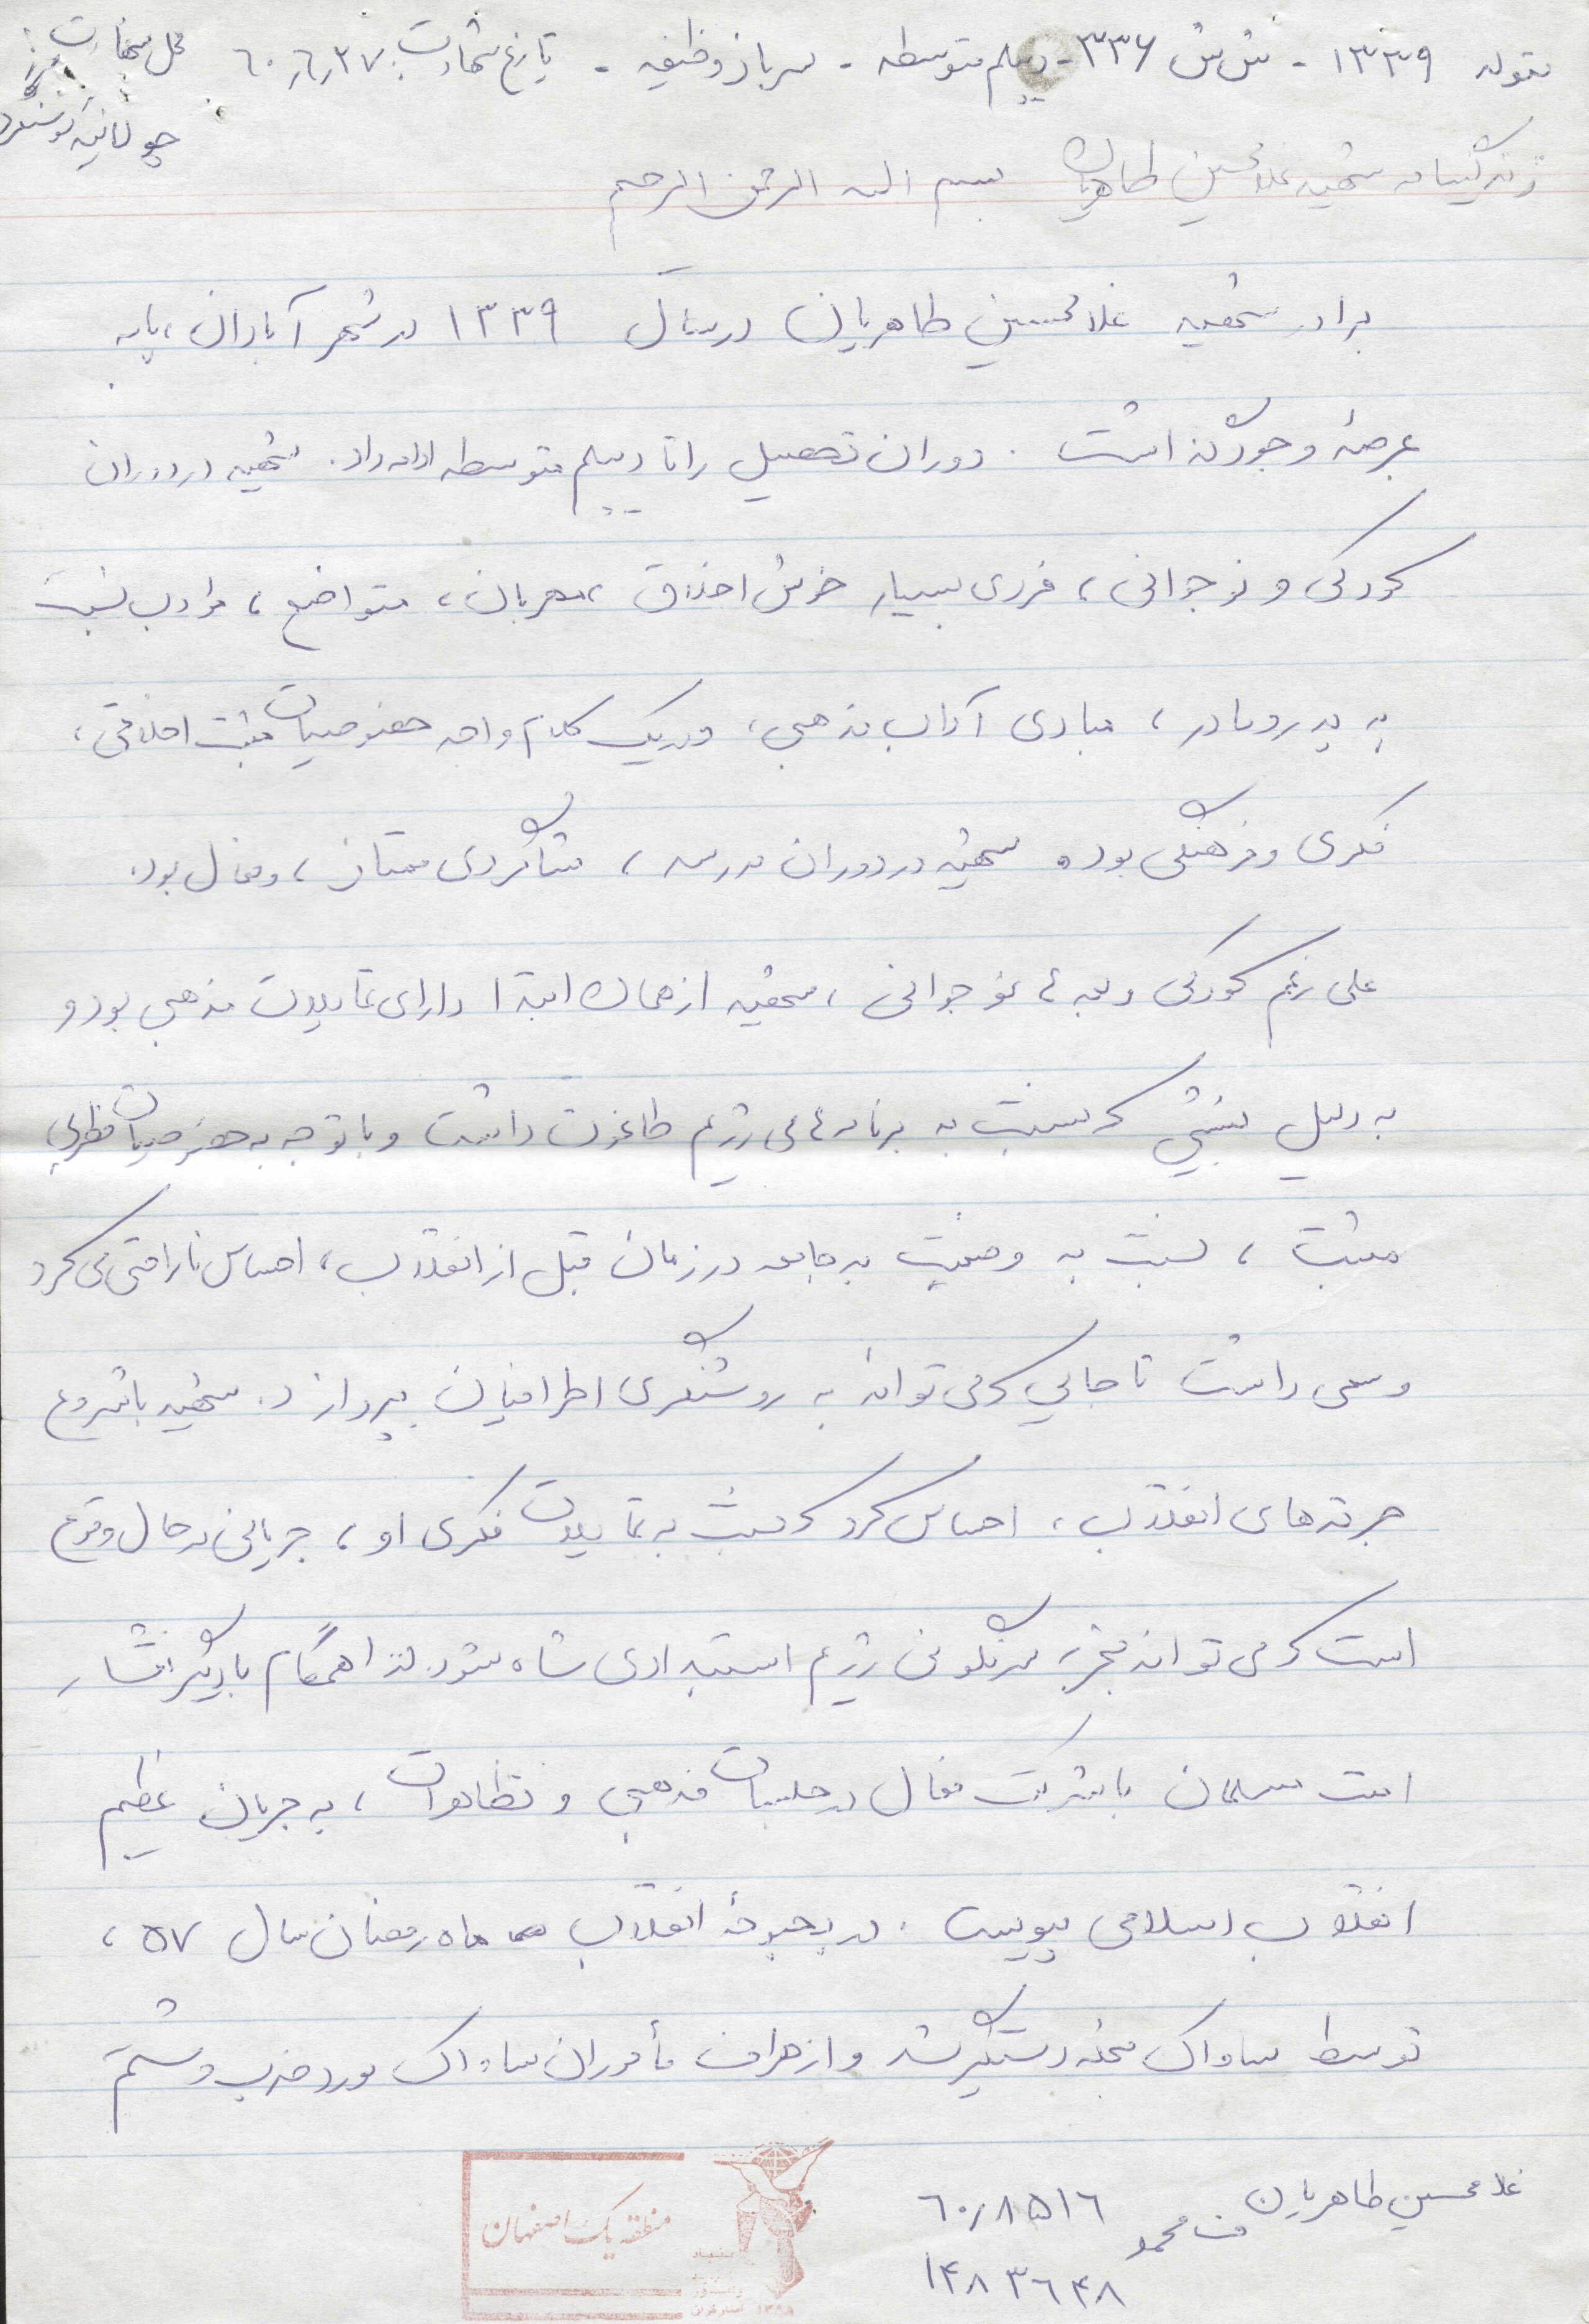 متولد ۱۳۳۹ - ش ش ۳۳۶ - دیپلم متوسطه - سرباز وظیفه - تاریخ شهادت: ۶۰٫۶٫۲۷ محل شهادت:
زندگینامه شهید غلامحسین طاهریان بسم الله الرحمن الرحیم
برادر شهید غلامحسین طاهریان در سال ۱۳۳۹ در شهر آبادان، پا به
عرصهٔ وجود گذاشت. دوران تحصیل را تا دیپلم متوسطه ادامه داد. شهید در دوران
کودکی و نوجوانی، فردی بسیار خوش اخلاق، مهربان، متواضع، مؤدب نسبت
به پدر و مادر، مبادی آداب مذهبی، و در یک کلام واجد خصوصیات مثبت اخلاقی،
فکری و فرهنگی بود. شهید در دوران مدرسه، شاگردی ممتاز، و فعال بود.
علی رغم کودکی و بعدها نوجوانی، شهید از همان ابتدا دارای تمایلات مذهبی بود و
به دلیل بینشی که نسبت به برنامه‌های رژیم طاغوت داشت و با توجه به خصوصیات فطری
مثبت، نسبت به وضعیت بد جامعه در زمان قبل از انقلاب، احساس ناراحتی می کرد
و سعی داشت تا جایی که می تواند به روشنگری اطرافیان بپردازد. شهید با شروع
جرقه های انقلاب، احساس کرد که نسبت به تمایلات فکری او، جریانی در حال وقوع
است که می تواند منجر به سرنگونی رژیم استبدادی شاه شود. لذا همگام با دیگر اقشار
امت مسلمان با شرکت فعال در جلسات مذهبی و تظاهرات، به جریان عظیم
انقلاب اسلامی پیوست. در بحبوحهٔ انقلاب ماه رمضان سال ۵۷،
توسط ساواک دستگیر شد و از طرف مأموران ساواک مورد ضرب و شتم
غلامحسین طاهریان ف محمد ۶۰٫۸۵۱۶
۱۴۸۳۶۴۸
منطقه یک اصفهان